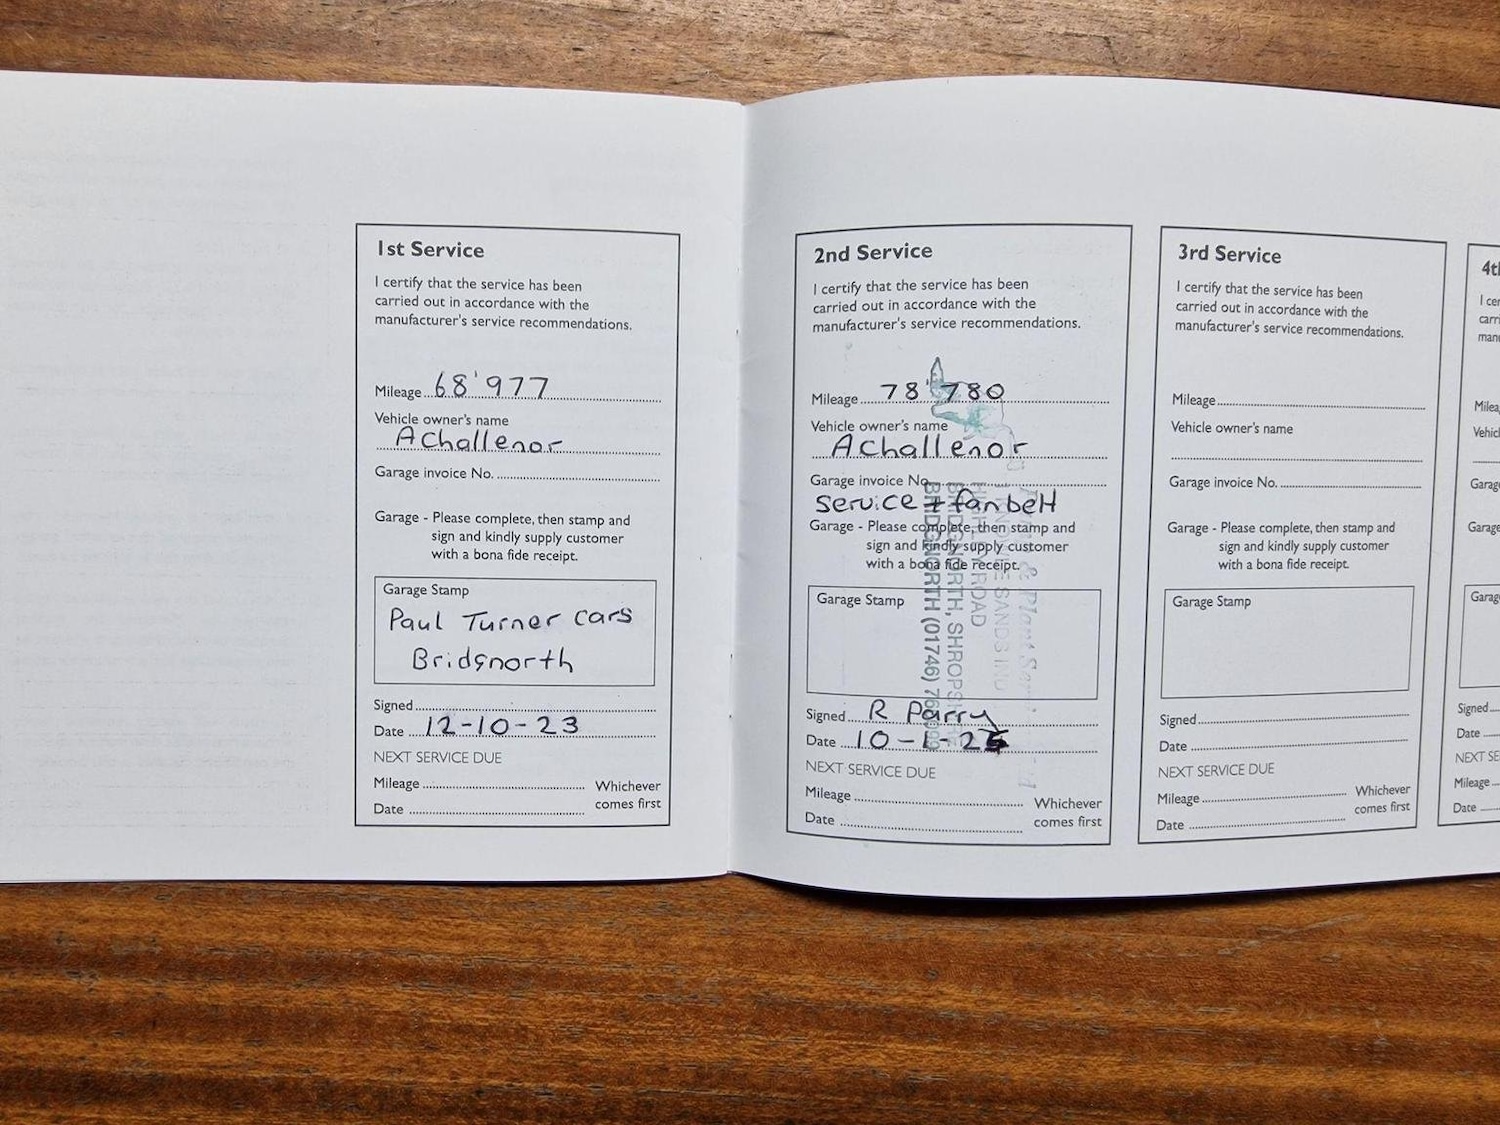 1st Service
I certify that the service has been
carried out in accordance with the
manufacturer's service recommendations.
Mileage 68'977
Vehicle owner's name
A Challenor
Garage invoice No.
Garage - Please complete, then stamp and
sign and kindly supply customer
with a bona fide receipt.
Garage Stamp
Paul Turner cars
Bridgnorth
Signed
Date 12-10-23
NEXT SERVICE DUE
Mileage
Whichever
Date
comes first
2nd Service
I certify that the service has been
carried out in accordance with the
manufacturer's service recommendations.
Mileage 78'780
Vehicle owner's name
A Challenor
Garage invoice No.
Service + fanbelt
Garage - Please complete, then stamp and
sign and kindly supply customer
with a bona fide receipt.
Garage Stamp
& Plant
SANDS
ROAD
BRIDGNORTH,
BRIDGNORTH (01746)
Signed R Parry
Date 10-1-25
NEXT SERVICE DUE
Mileage
Whichever
Date
comes first
3rd Service
I certify that the service has been
carried out in accordance with the
manufacturer's service recommendations.
Mileage
Vehicle owner's name
Garage invoice No.
Garage - Please complete, then stamp and
sign and kindly supply customer
with a bona fide receipt.
Garage Stamp
Signed
Date
NEXT SERVICE DUE
Mileage
Whichever
Date
comes first
I
Signed
Date
Mileage
Date